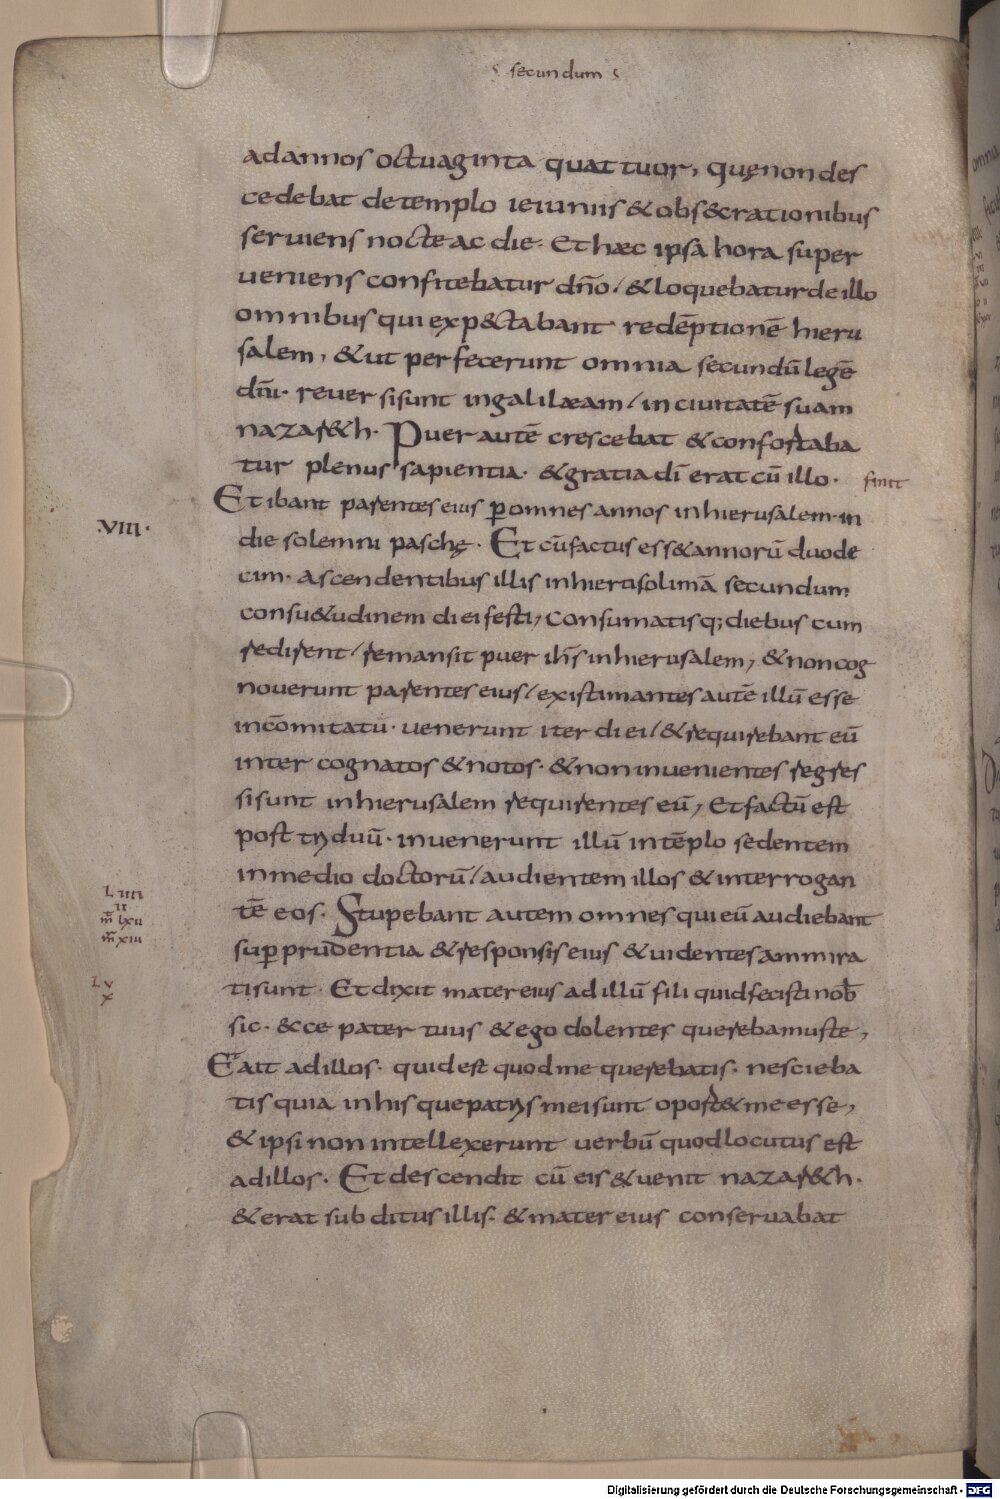 secundum
ad annos octuaginta quattuor, quę non des
cedebat de templo ieiuniis & obs&crationibus
seruiens nocte ac die. Et hæc ipsa hora super
ueniens confitebatur dño, & loquebatur de illo
omnibus qui exp&ctabant redēptionē hieru
salem, & ut perfecerunt omnia secundū legē
dñi. reuersi sunt in galilæam, in ciuitatē suam
nazar&h. Puer autē crescebat & confortaba
tur plenus sapientia. & gratia dī erat cū illo. finit
Et ibant parentes eius ꝑ omnes annos in hierusalem. in
VIII.
die solemni paschę. Et cū factus ess& annorū duode
cim. ascendentibus illis in hierusolimā secundum
consu&udinem diei festi, Consumatisq; diebus cum
redirent, remansit puer ihs in hierusalem, & non cog
nouerunt parentes eius, existimantes autē illū esse
in cōmitatu. uenerunt iter diei, & requirebant eū
inter cognatos & notos. & non inuenientes regres
si sunt in hierusalem requirentes eū, Et factū est
post triduū. inuenerunt illū in tēplo sedentem
in medio doctorū, audientem illos & interrogan
L IIII
II
m̄ lxII
m̄ xIII
tē eos. Stupebant autem omnes qui eū audiebant
suꝑ prudentia & responsis eius & uidentes ammira
L V
X
ti sunt. Et dixit mater eius ad illū fili quid fecisti nob̄
sic. &ce pater tuus & ego dolentes querebamus te,
Et ait ad illos. quid est quod me querebatis. nescieba
tis quia in his que patris mei sunt oport& me esse,
& ipsi non intellexerunt uerbū quod locutus est
ad illos. Et descendit cū eis & uenit nazar&h.
& erat subditus illis. & mater eius conseruabat
Digitalisierung gefördert durch die Deutsche Forschungsgemeinschaft - DFG